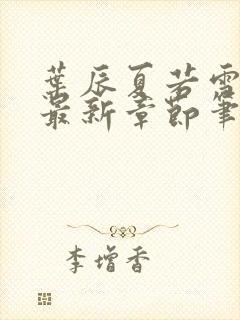 葉辰夏若雪
最新章節筆
李增香